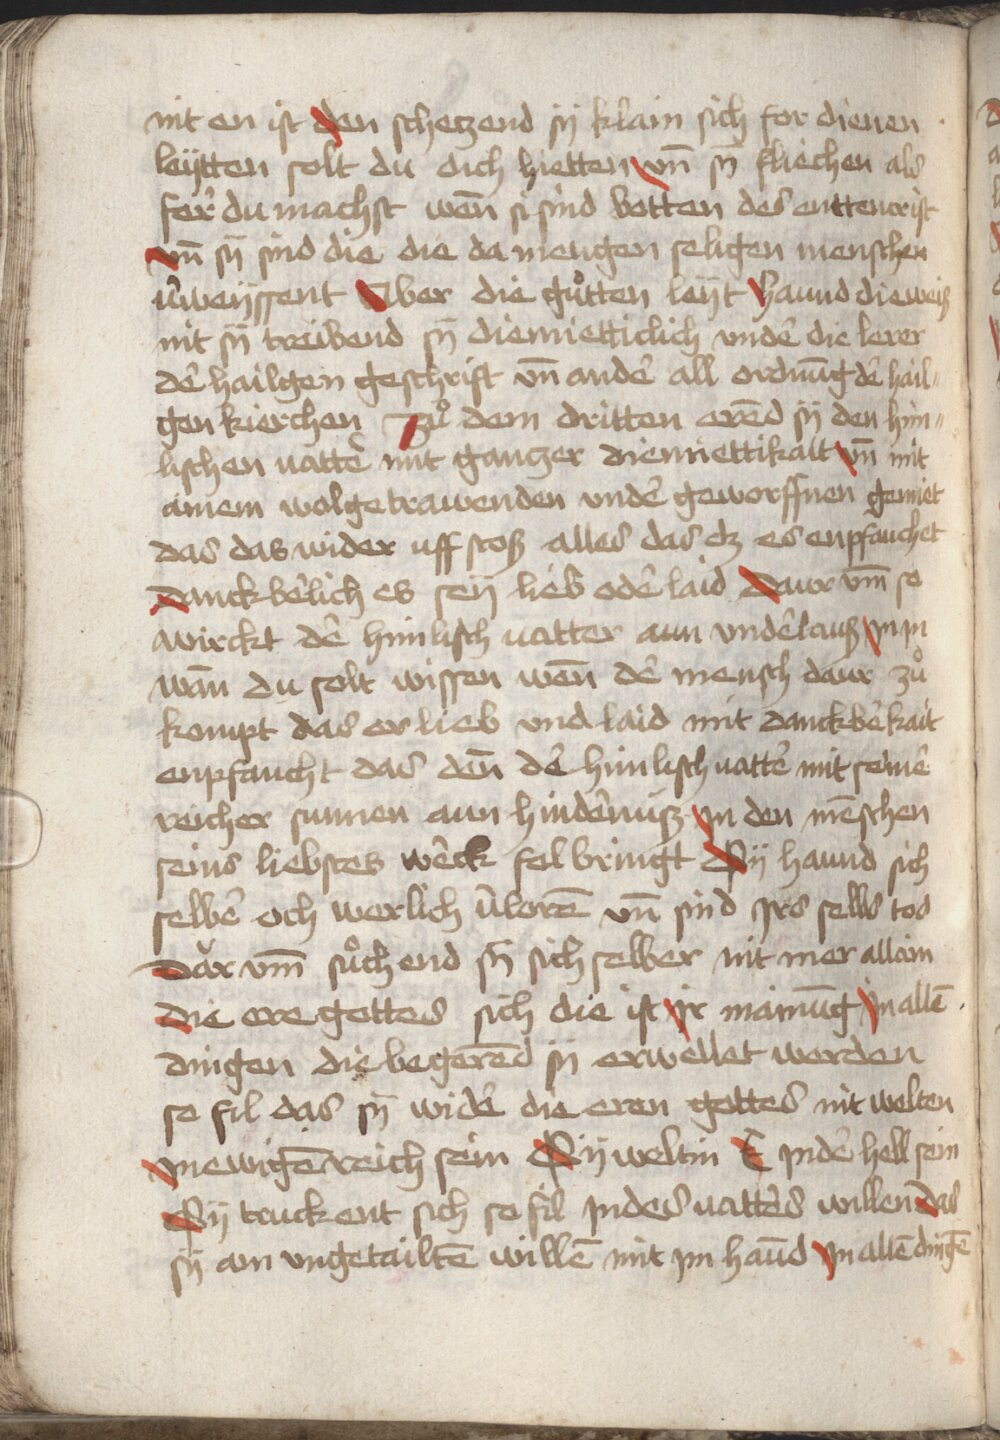 nit en ist den schetzend sÿ klain sich for dienen
leÿtten solt du dich hietten vn̄ sÿ fliechen als
fer du machst wen̄ si sind botten des enttencrist
vn̄ sÿ sind die die da mengen seligen menschen
v̂weÿssent Aber die gůtten leÿt haund die weiß
nit sÿ treibend sÿ diemietticlich vndê die lerer
dê hailgen geschrift vn̄ andê all ordnūg dê hail„
gen kierchen Zů dem dritten erēd sÿ den him„
lischen vattê mit gantzer diemiettikait vn̄ mit
ainem wolgetrawenden vndê geworffnen gemiet
das das wider uff stoß alles das dz es enpfauchet
Danckbêlich es seÿ lieb odê laid Daur vm̄ so
wirckt dê himlisch vatter aun vndêlauß jn jn
wan̄ du solt wissen wen̄ dê mensch daur zů
kompt das er lieb vnd laid mit danckbêkait
enpfaucht das den̄ dê himlisch vattê mit seinê
reicher sunnen aun hindênuiß jn den mēschen
seins liebstes wêck fol bringt Sÿ haund sich
selbê och werlich v̂lorē vn̄ sind jrs selbs tod
Dar vm̄ sůchend sÿ sich selber nit mer allain
Die ere gottes sich die ist jr mainūg jn allē
dingen die begerēd sÿ erwellet werden
so fil das sÿ widê die eren gottes nit welten
jn ewigē reich sein Sÿ weltin E jn dê hell sein
Sÿ truckent sich so fil jn des vattês willen das
sÿ ain vngetailtē willē mit jm haūd jn allē dingē